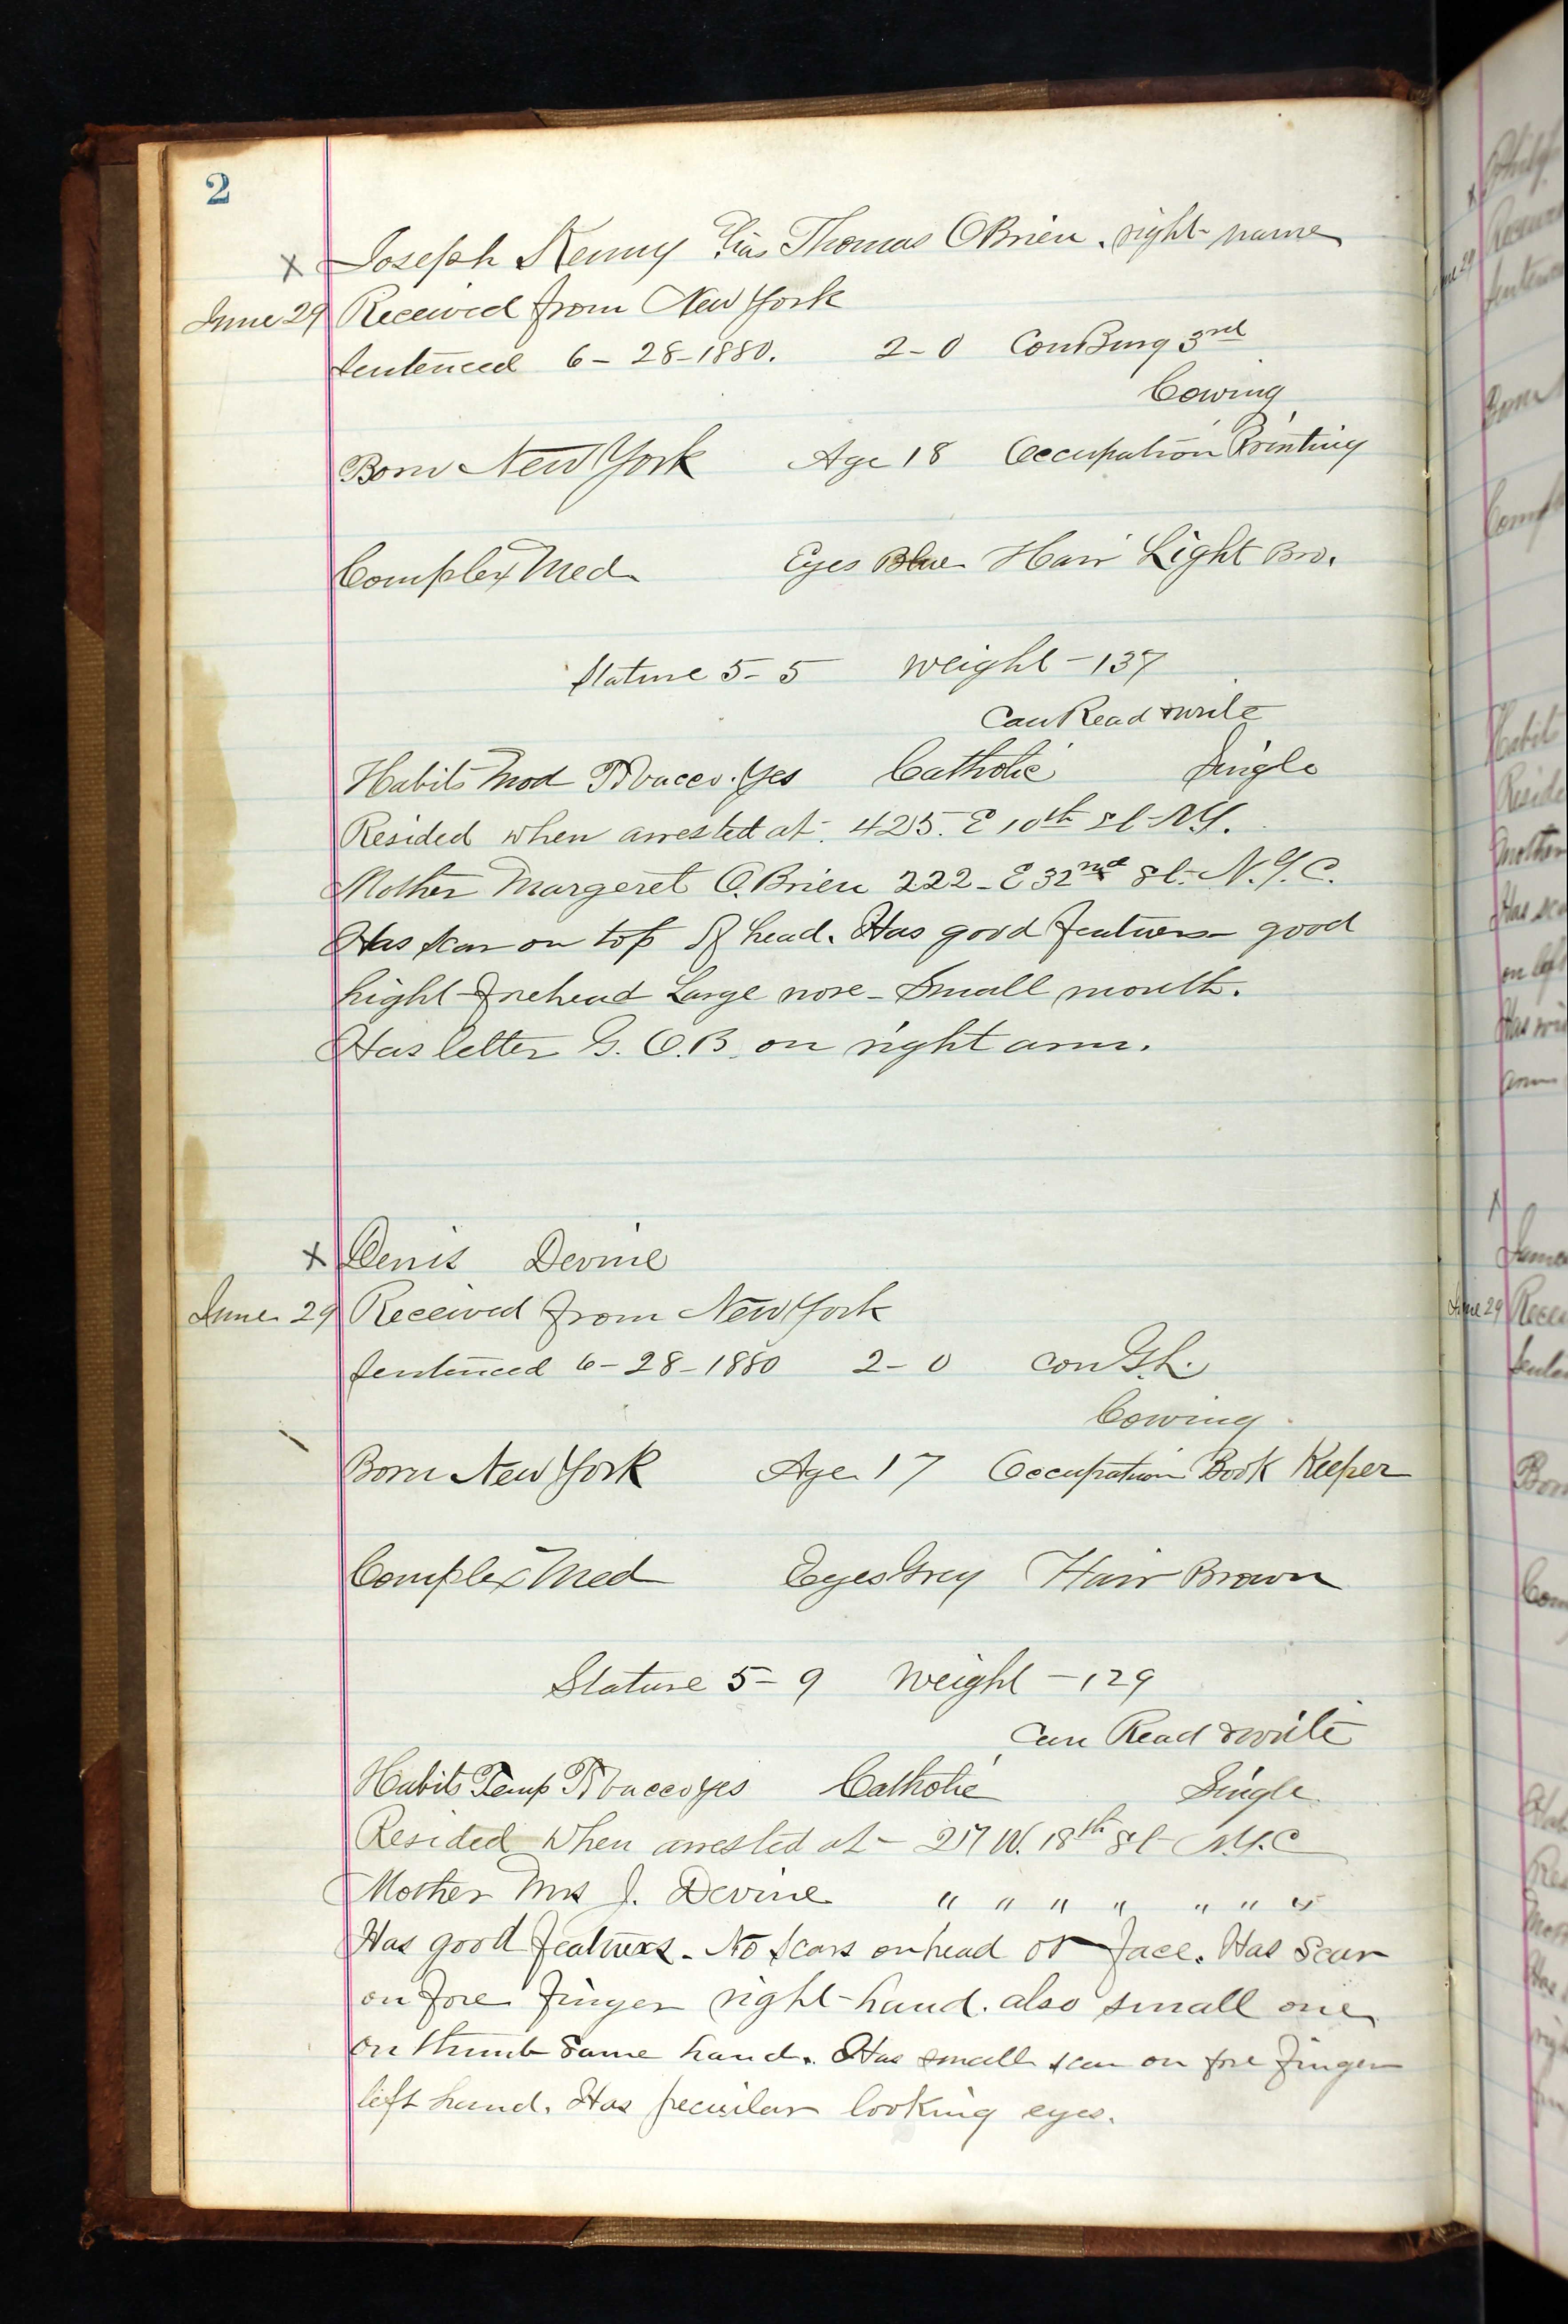 2
x Joseph Kenny Alias Thomas OBrien. right name
June 29 Received from New York
Sentenced 6-28-1880. 2-0 Con Burg 3rd
Cowing
Born New York Age 18 Occupation Printing
Complex Med. Eyes Blue Hair Light Bro.
Stature 5-5 Weight -137
Can Read & write
Habits Mod Tobacco. Yes Catholic Single
Resided when arrested at 425. E 10th St N.Y.
Mother Margeret O.Brien 222-E 32nd St. N.Y.C.
Has scar on top of head. Has good features good
hight forehead Large nose - Small mouth.
Has letter G. O.B. on right arm.
x Denis Devine
June 29 Received from New York
Sentenced 6-28-1880 2-0 con G.L.
Cowing
Born New York Age 17 Occupation Book Keeper
Complex Med Eyes Grey Hair Brown
Stature 5-9 Weight -129
Can Read & write
Habits Temp Tobacco yes Catholic Single
Resided when arrested at - 217 W. 18th St N.Y.C
Mother Mrs J. Devine " " " " " " "
Has good features. No scars on head or face. Has scar
on fore finger right hand. also small one
on thumb same hand. Has small scar on fore finger
left hand. Has peculiar looking eyes.